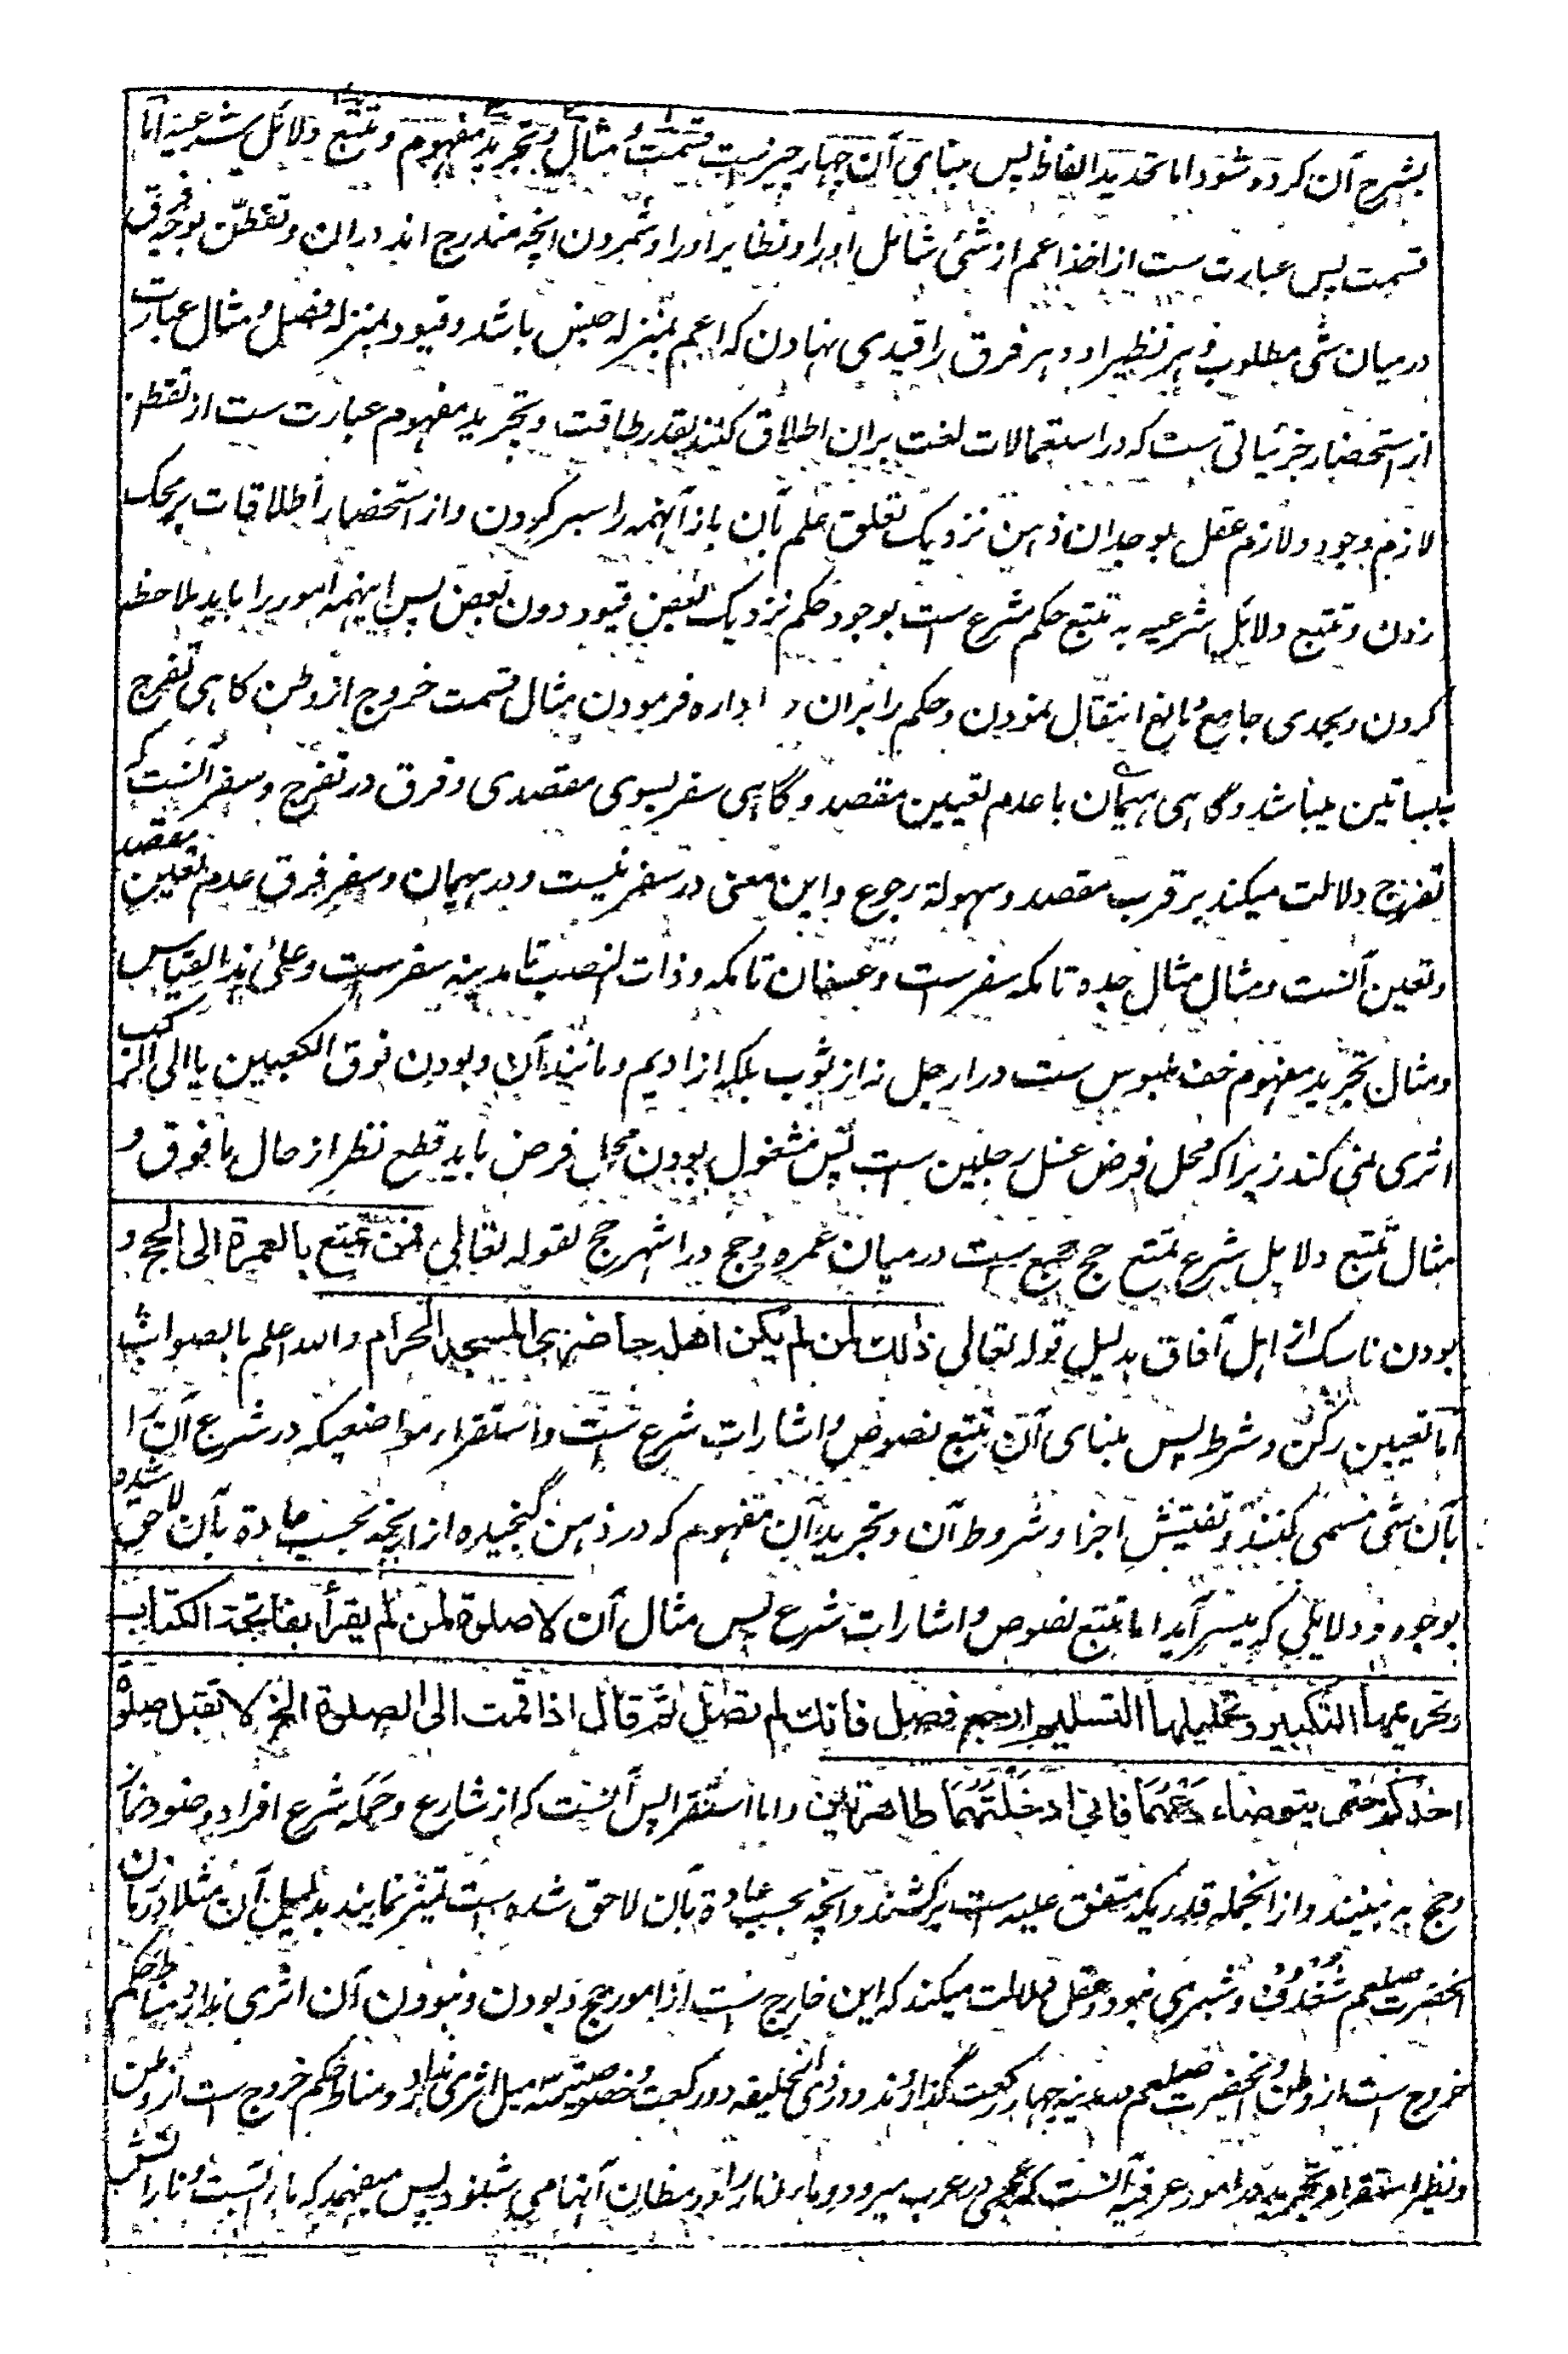 بشرح آن کرده شود اما تحدید الفاظ پس مبنای آن چهار چیز ست قسمت و مثال و تجرید مفهوم و تتبع دلائل شرعیه اما
قسمت پس عبارت ست از اخذ اعم از شئی شامل او را و نظایر او را و شمردن انچه مندرج اند در ان و تفطن بوجه فرق
درمیان شئ مطلوب و هر نظیر او و هر فرق را قیدی نهادن که اعم بمنزله جنس باشد و قیود بمنزله فصل و مثال عبارت
از استحضار جزئیاتی ست که در استعمالات لغت بران اطلاق کنند بقدر طاقت و تجرید مفهوم عبارت ست از تفطن
لازم وجود و لازم عقل بوجدان ذهن نزدیک تعلق علم بآن باز آنهمه را سبر کردن و از استحضار اطلاقات بر محک
زدن و تتبع دلائل شرعیه به تتبع حکم شرع ست بوجود حکم نزدیک بعض قیود دون بعض پس اینهمه امور را باید ملاحظه
کردن و بحدی جامع مانع انتقال نمودن و حکم را بران اداره فرمودن مثال قسمت خروج از وطن گاهی تفرج
ببساتین میباشد و گاهی هیمان با عدم تعیین مقصد و گاهی سفر بسوی مقصدی و فرق در تفرج و سفر آنست که
تفرج دلالت میکند بر قرب مقصد و سهولة رجوع و این معنی در سفر نیست و در هیمان و سفر فرق عدم تعین مقصد
و تعین آنست و مثال مثال جده تا مکه سفرست و عسفان تا مکه و ذات النصب تا مدینه سفرست و علی هذا القیاس
و مثال تجرید مفهوم خف ملبوس ست در ارجل نه از ثوب بلکه از ادیم و مانند آن و بودن فوق الکعبین یا الی الرکب
اثری نمی کند زیرا که محل فرض غسل رجلین ست پس مشغول بودن محل فرض باید قطع نظر از حال ما فوق و
مثال تتبع دلایل شرع تمتع حج جمع ست درمیان عمره و حج در اشهر حج لقوله تعالی فمن تمتع بالعمرة الی الحج و
بودن ناسک از اهل آفاق بدلیل قوله تعالی ذلك لمن لم یکن اهله حاضری المسجد الحرام والله اعلم بالصواب
اما تعیین رکن و شرط پس مبنای آن تتبع نصوص و اشارات شرع ست و استقراء مواضعیکه در شرع آن را
بآن شئ مسمی کنند و تفتیش اجزا و شروط آن و تجرید آن مفهوم که در ذهن گنجیده از انچه بحسب عادة بآن لاحق شده
بوجوه و دلایلی که میسر آید اما تتبع نصوص و اشارات شرع پس مثال آن لا صلوة لمن لم یقرأ بفاتحة الکتاب
وتحریمها التکبیر وتحلیلها التسلیم ارجع فصل فانك لم تصل ثم قال اذا قمت الی الصلوة الخ لا تقبل صلوة
احدکم حتی یتوضاء دعهما فانی ادخلتهما طاهرتین و اما استقرا پس آنست که از شارع و حمله شرع افراد وضو و نماز
و حج به بینند و از انجمله قدریکه متفق علیه ست برکشند و انچه بحسب عادة بآن لاحق شده ست تمیز نمایند بدلیل آن مثلا در زمان
انحضرت صلعم شغدف و شبری نبود و عقل دلالت میکند که این خارج ست از امور حج و بودن و نبودن آن اثری ندارد مناط حکم
خروج ست از وطن و انحضرت صلعم مدینه چهار رکعت گذاردند و در ذی الحلیفه دو رکعت و خصوصیت سه میل اثری ندارد و مناط حکم خروج ست از وطن
و نظیر استقرا و تجرید در امور عرفیه آنست که عجمی در عرب میرود و ماء و نار را در مظان آنها می شنود پس میفهمد که ماء آبست و نار آتش